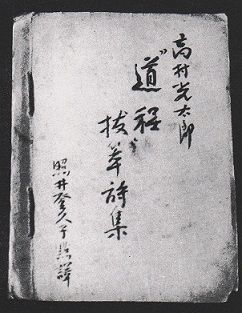 高村光太郎
"道程"
抜萃詩集
照井登久子